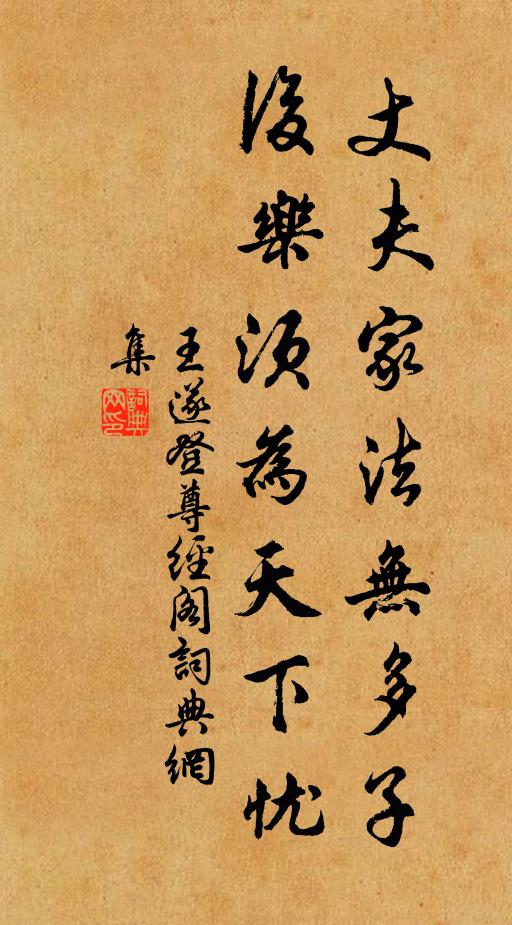 丈夫家法無多子
後樂須為天下忧
王遂登尊經阁詞典網
集
詞典
网印